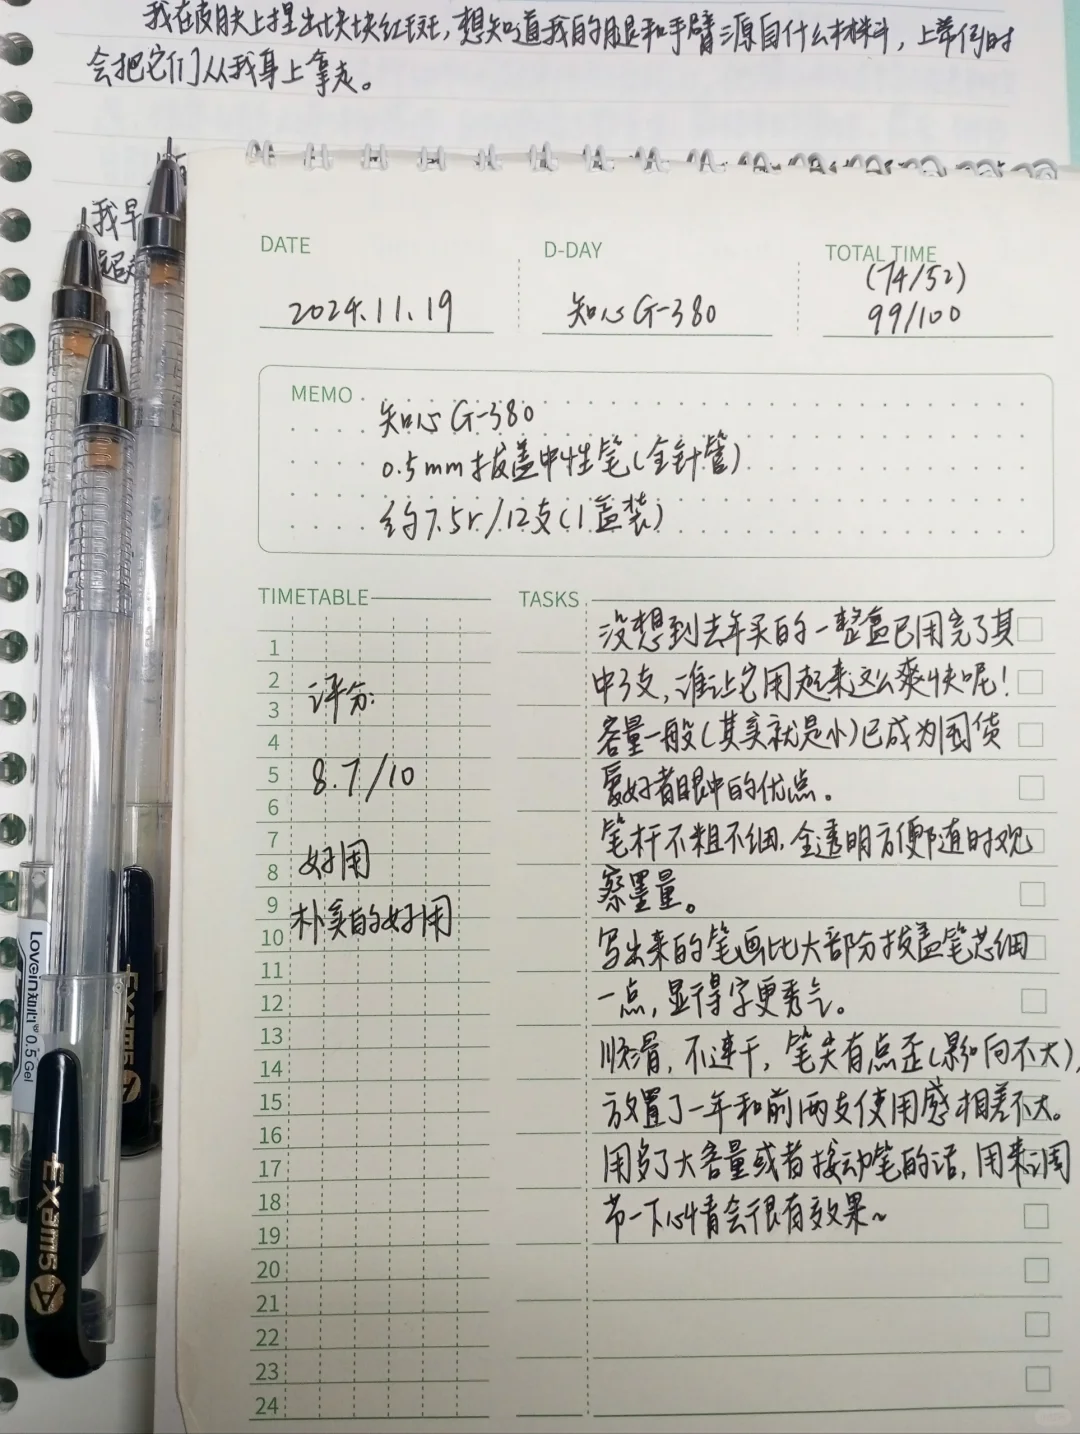 我在皮肤上捏出块块红斑，想知道我的腿和手臂源自什么材料，上帝何时
会把它们从我身上拿走。
我早
DATE
2024.11.19
D-DAY
知心G-380
TOTAL TIME
(74/52)
99/100
MEMO
知心G-380
0.5mm拔盖中性笔(全针管)
约7.5r/12支(1盖装)
TIMETABLE
1
2
3
4
5
6
7
8
9
10
11
12
13
14
15
16
17
18
19
20
21
22
23
24
评分:
8.7/10
好用
朴实的好用
TASKS
没想到去年买的一整盒已用完了其
中3支，谁让它用起来这么爽快呢！
容量一般(其实就是小)已成为囤货
爱好者眼中的优点。
笔杆不粗不细，全透明方便随时观
察墨量。
写出来的笔画比大部分拔盖笔芯细
一点，显得字更秀气。
顺滑，不连干，笔尖有点歪(影响不大)，
放置了一年和前两支使用感相差不大。
用多了大容量或者按动笔的话，用来调
节一下心情会很有效果~
Lovein知心® 0.5Gel
Exam5 A
Exam5 A